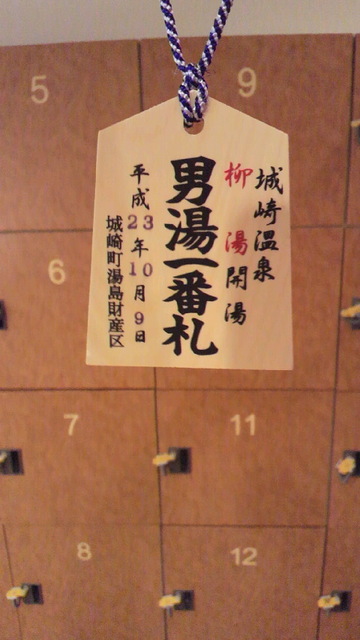 城崎温泉
柳湯開湯
男湯一番札
平成23年10月9日
城崎町湯島財産区
5
9
6
7
11
8
12